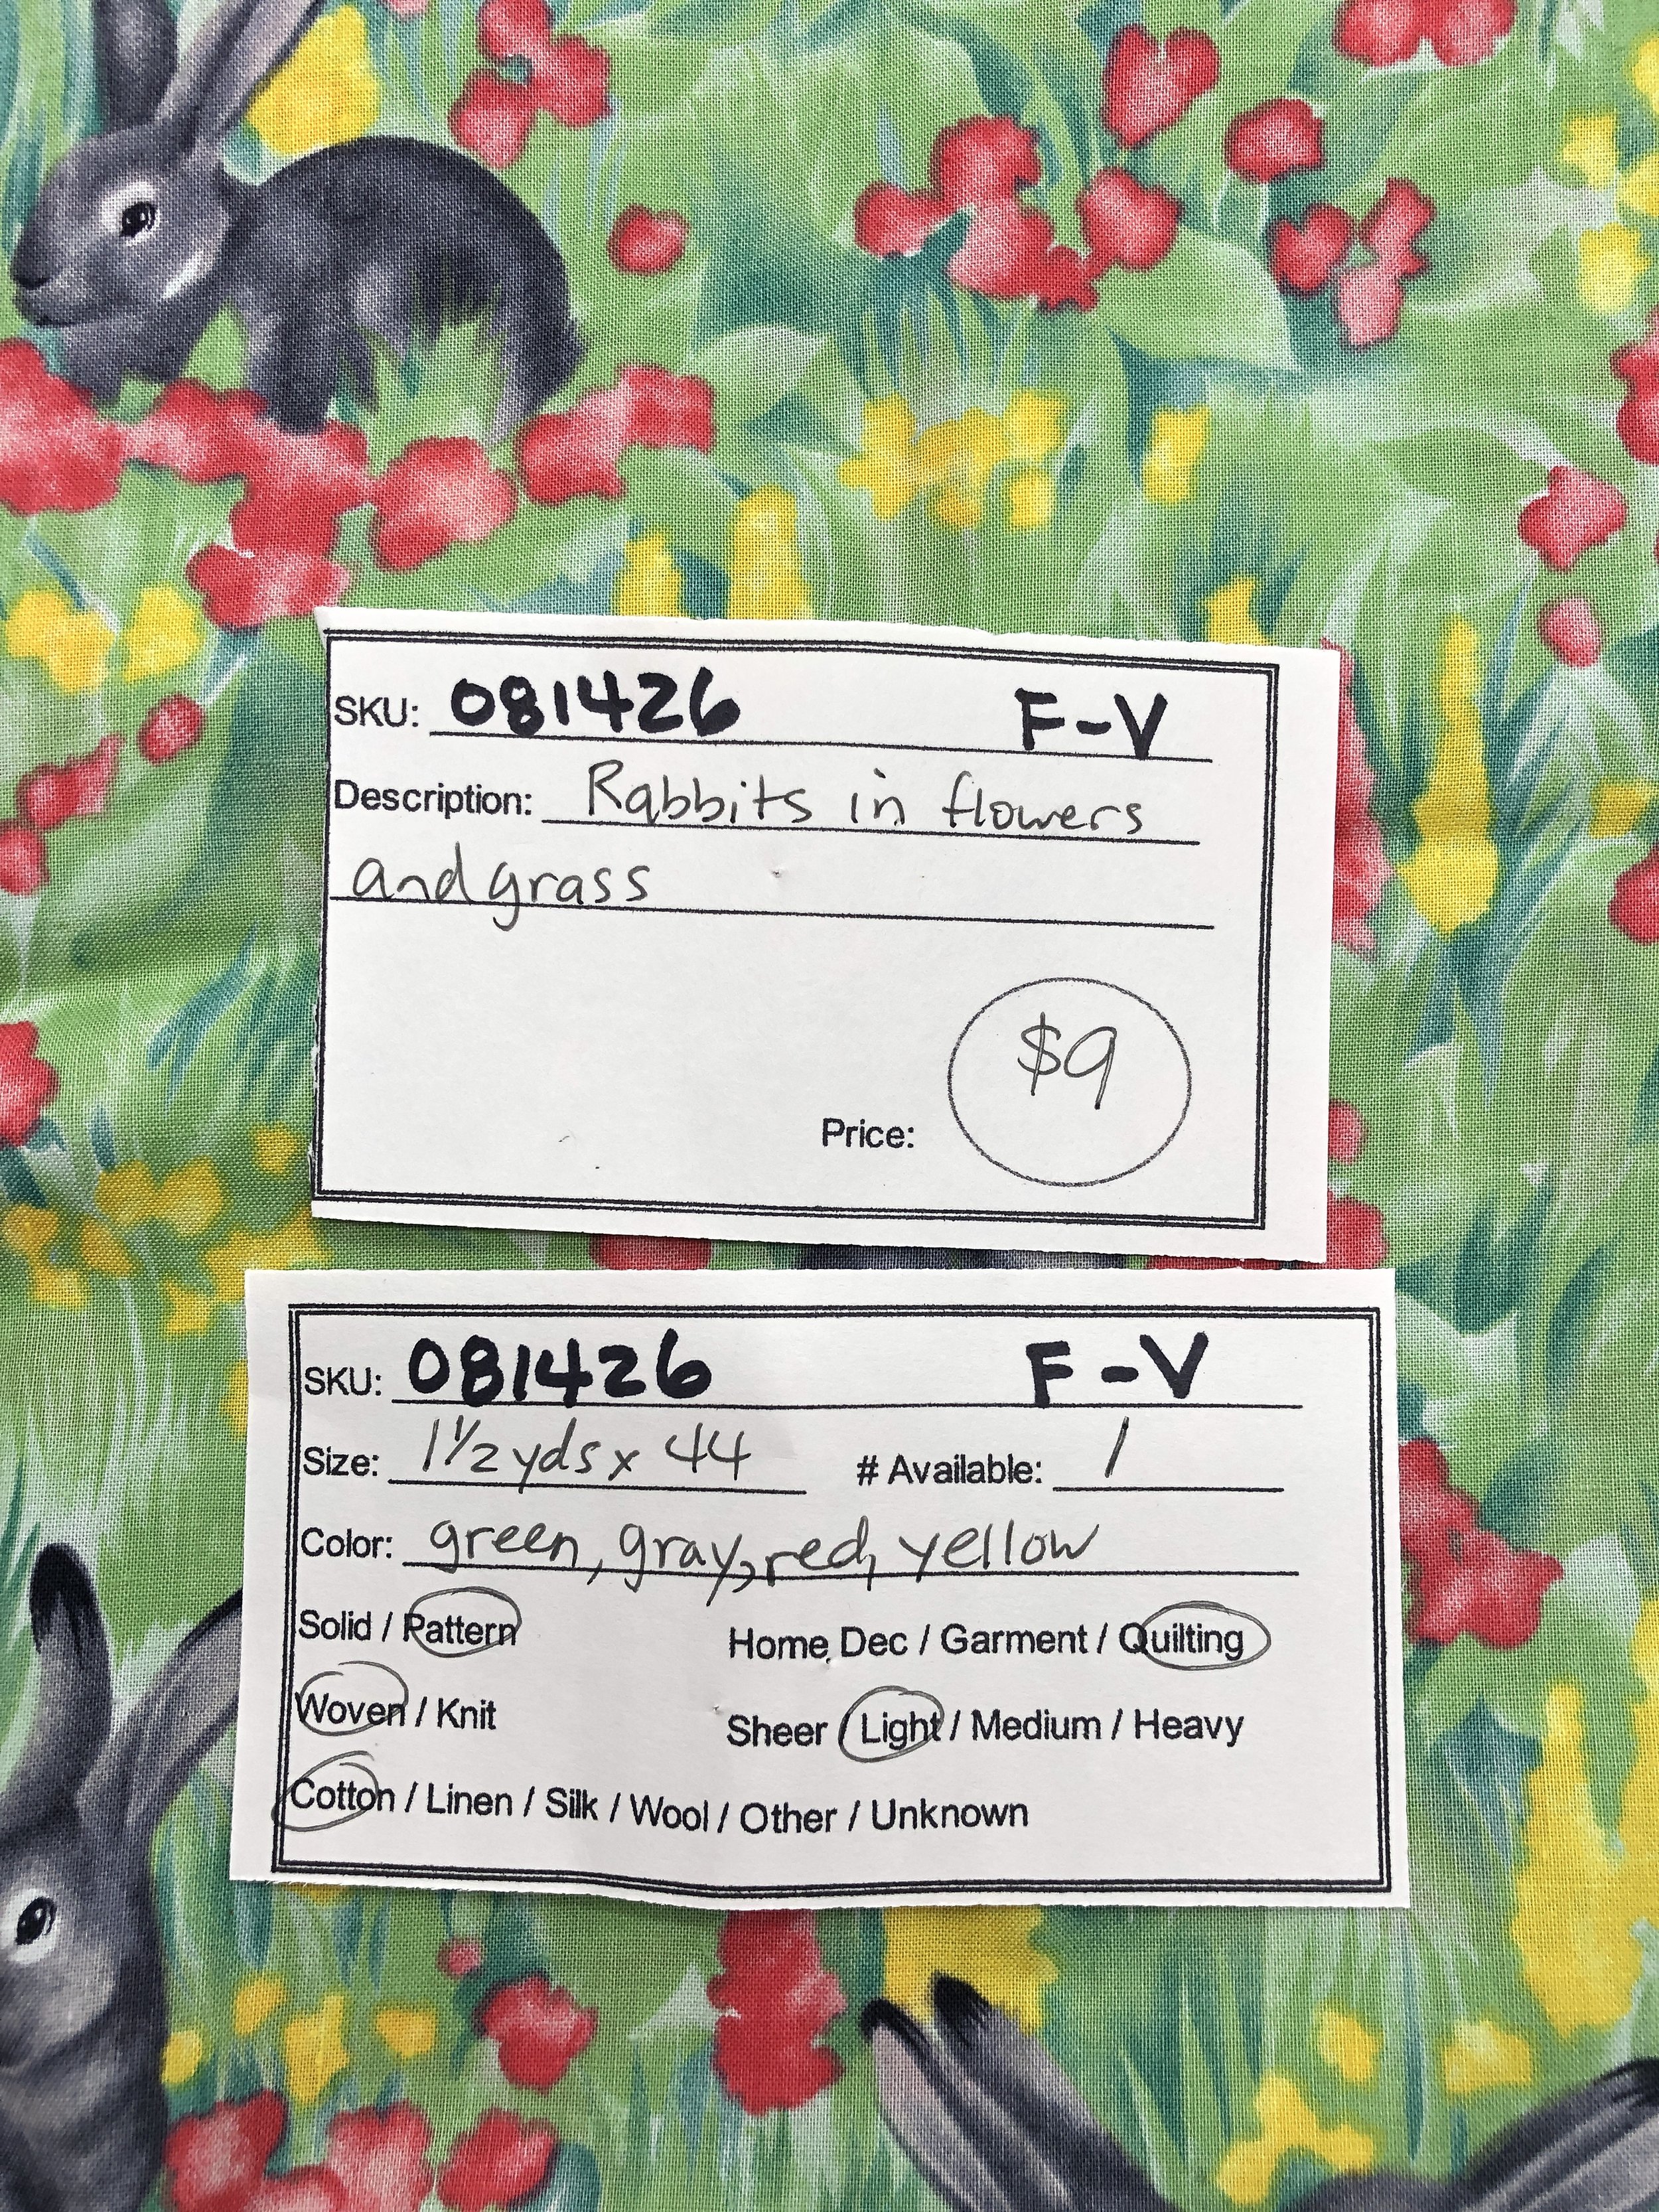 SKU: 081426 F-V
Description: Rabbits in flowers
and grass
Price: $9
SKU: 081426 F-V
Size: 1 1/2 yds x 44 # Available: 1
Color: green, gray, red, yellow
Solid / Pattern Home Dec / Garment / Quilting
Woven / Knit Sheer / Light / Medium / Heavy
Cotton / Linen / Silk / Wool / Other / Unknown